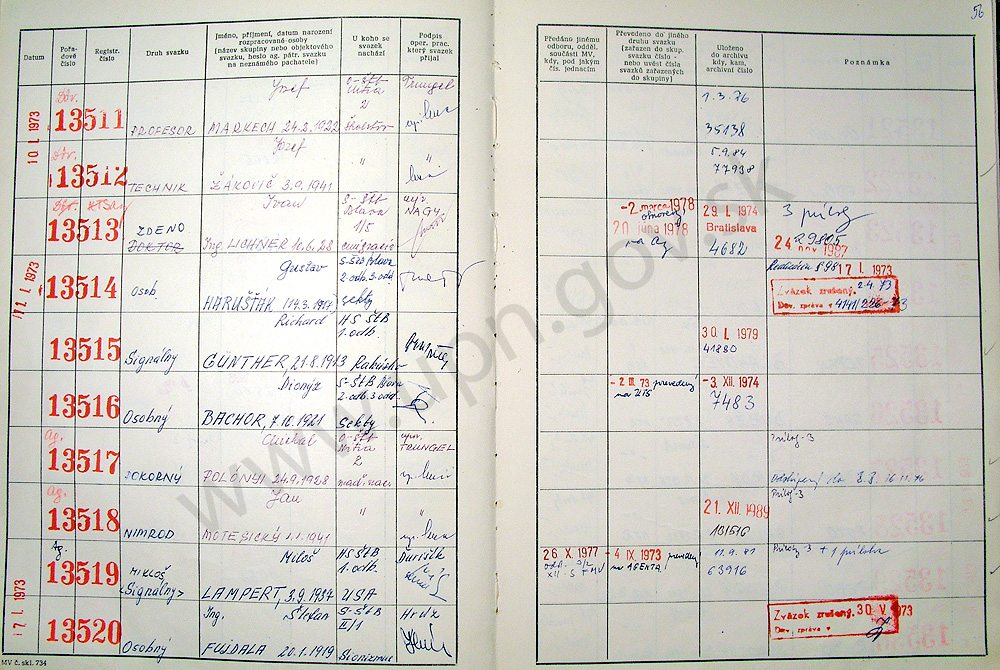 56
Datum
Pořa-
dové
číslo
Registr.
číslo
Druh svazku
Jméno, příjmení, datum narození
rozpracované osoby
(název skupiny nebo objektového
svazku, heslo ag. pátr. svazku
na neznámého pachatele)
U koho se
svazek
nachází
Podpis
oper. prac.
který svazek
přijal
Předáno jinému
odboru, odděl.
součásti MV,
kdy, pod jakým
čís. jednacím
Převedeno do jiného
druhu svazku
(zařazen do skup.
svazku číslo -
nebo uvést čísla
svazků zařazených
do skupiny)
Uloženo
do archivu
kdy, kam,
archivní číslo
Poznámka
10 I. 1973
13511
PROFESOR
Jozef
MARKECH 24.2.1922
Nitra
2
1.3.76
35138
13512
TECHNIK
Jozef
ŽÁKOVIČ 3.9.1941
"
"
5.9.84
77938
13513
ZDENO
DOKTOR
Ivan
Ing. LICHNER 10.6.28
1/5
emigrácia
NAGY
-2. marca 1978
20 júna 1978
29. I. 1974
Bratislava
4682
3 prílohy
24 nov 1987
11 I. 1973
13514
Osob.
Gustáv
HARUŠŤÁK 14.3.1917
2.odb. 3.odd.
sekty
17 I. 1973
Zväzok zrušený. 2.4.73
Dov. zpráva v 4141/226-73
13515
Signálny
Richard
GÜNTHER, 21.8.1913
HS ŠtB
1.odb.
Rakúsko
30. I. 1979
41880
13516
Osobný
Dionýz
BACHOR, 7.10.1921
2.odb. 3.odd.
Sekty
-2 III. 73 prevedený
-3. XII. 1974
7483
Ag.
13517
POKORNÝ
Michal
POLÓNYI 24.9.1928
Nitra
2
TRUNGEL
Príloh-3
Ag.
13518
NIMROD
Ján
MOTEŠICKÝ 1.1.1941
"
"
21. XII. 1989
101516
Príloh-3
Ag.
13519
MIKLOŠ
<Signálny>
Miloš
LAMPERT, 3.9.1934
HS ŠtB
1.odb.
USA
Ďurišík
26 X. 1977
-4 IX. 1973 prevedený
na AGENTA
11.9.81
63916
Prílohy-3 + 1 príloha
17 I. 1973
13520
Osobný
Ing. Štefan
FUJDALA 20.1.1919
S-ŠtB
II/1
Sionizmus
Zväzok zrušený. 30 V. 1973
Dov. zpráva v
MV č. skl. 734
www.upn.gov.sk